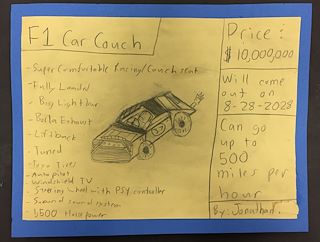 F1 Car Couch
- Super Comfortable Racing/Couch seat
- Fully Loaded
- Big Light bar
- Baila Exhaust
- Liftback
- Tuned
- Toyo Tires
- Auto pilot
windshield TV
- Steering wheel with PS4 controller
- Surround sound system
- 1,500 Horse power
Price:
$10,000,000
Will come
out on
8-28-2028
Can go
up to
500
miles per
hour
By: Jonathan.